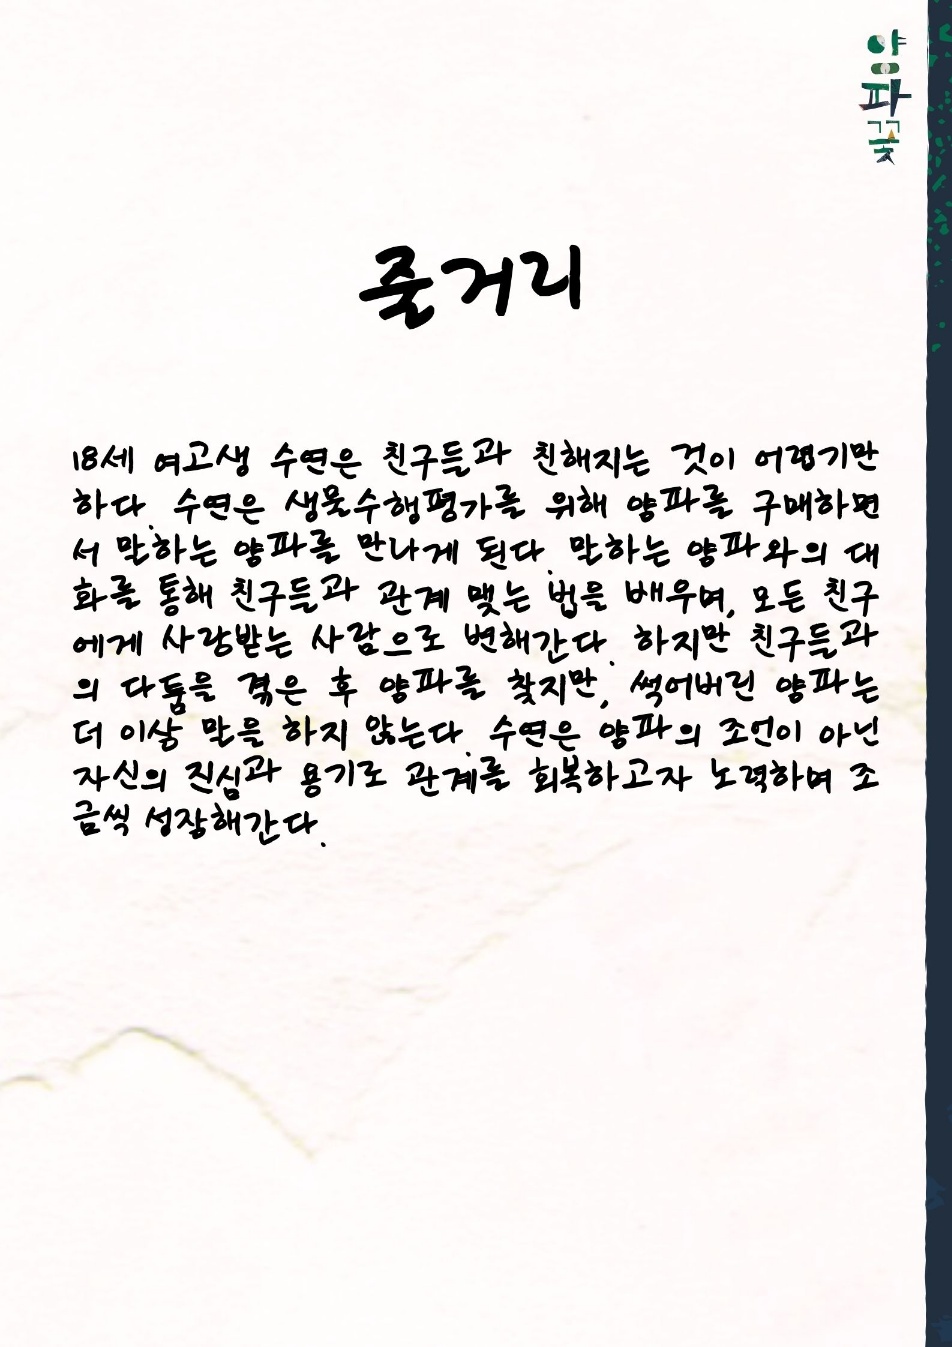 양
파
꽃
줄거리
18세 여고생 수연은 친구들과 친해지는 것이 어렵기만
하다. 수연은 생물수행평가를 위해 양파를 구매하면
서 말하는 양파를 만나게 된다. 말하는 양파와의 대
화를 통해 친구들과 관계 맺는 법을 배우며, 모든 친구
에게 사랑받는 사람으로 변해간다. 하지만 친구들과
의 다툼을 겪은 후 양파를 찾지만, 썩어버린 양파는
더 이상 말을 하지 않는다. 수연은 양파의 조언이 아닌
자신의 진심과 용기로 관계를 회복하고자 노력하며 조
금씩 성장해간다.